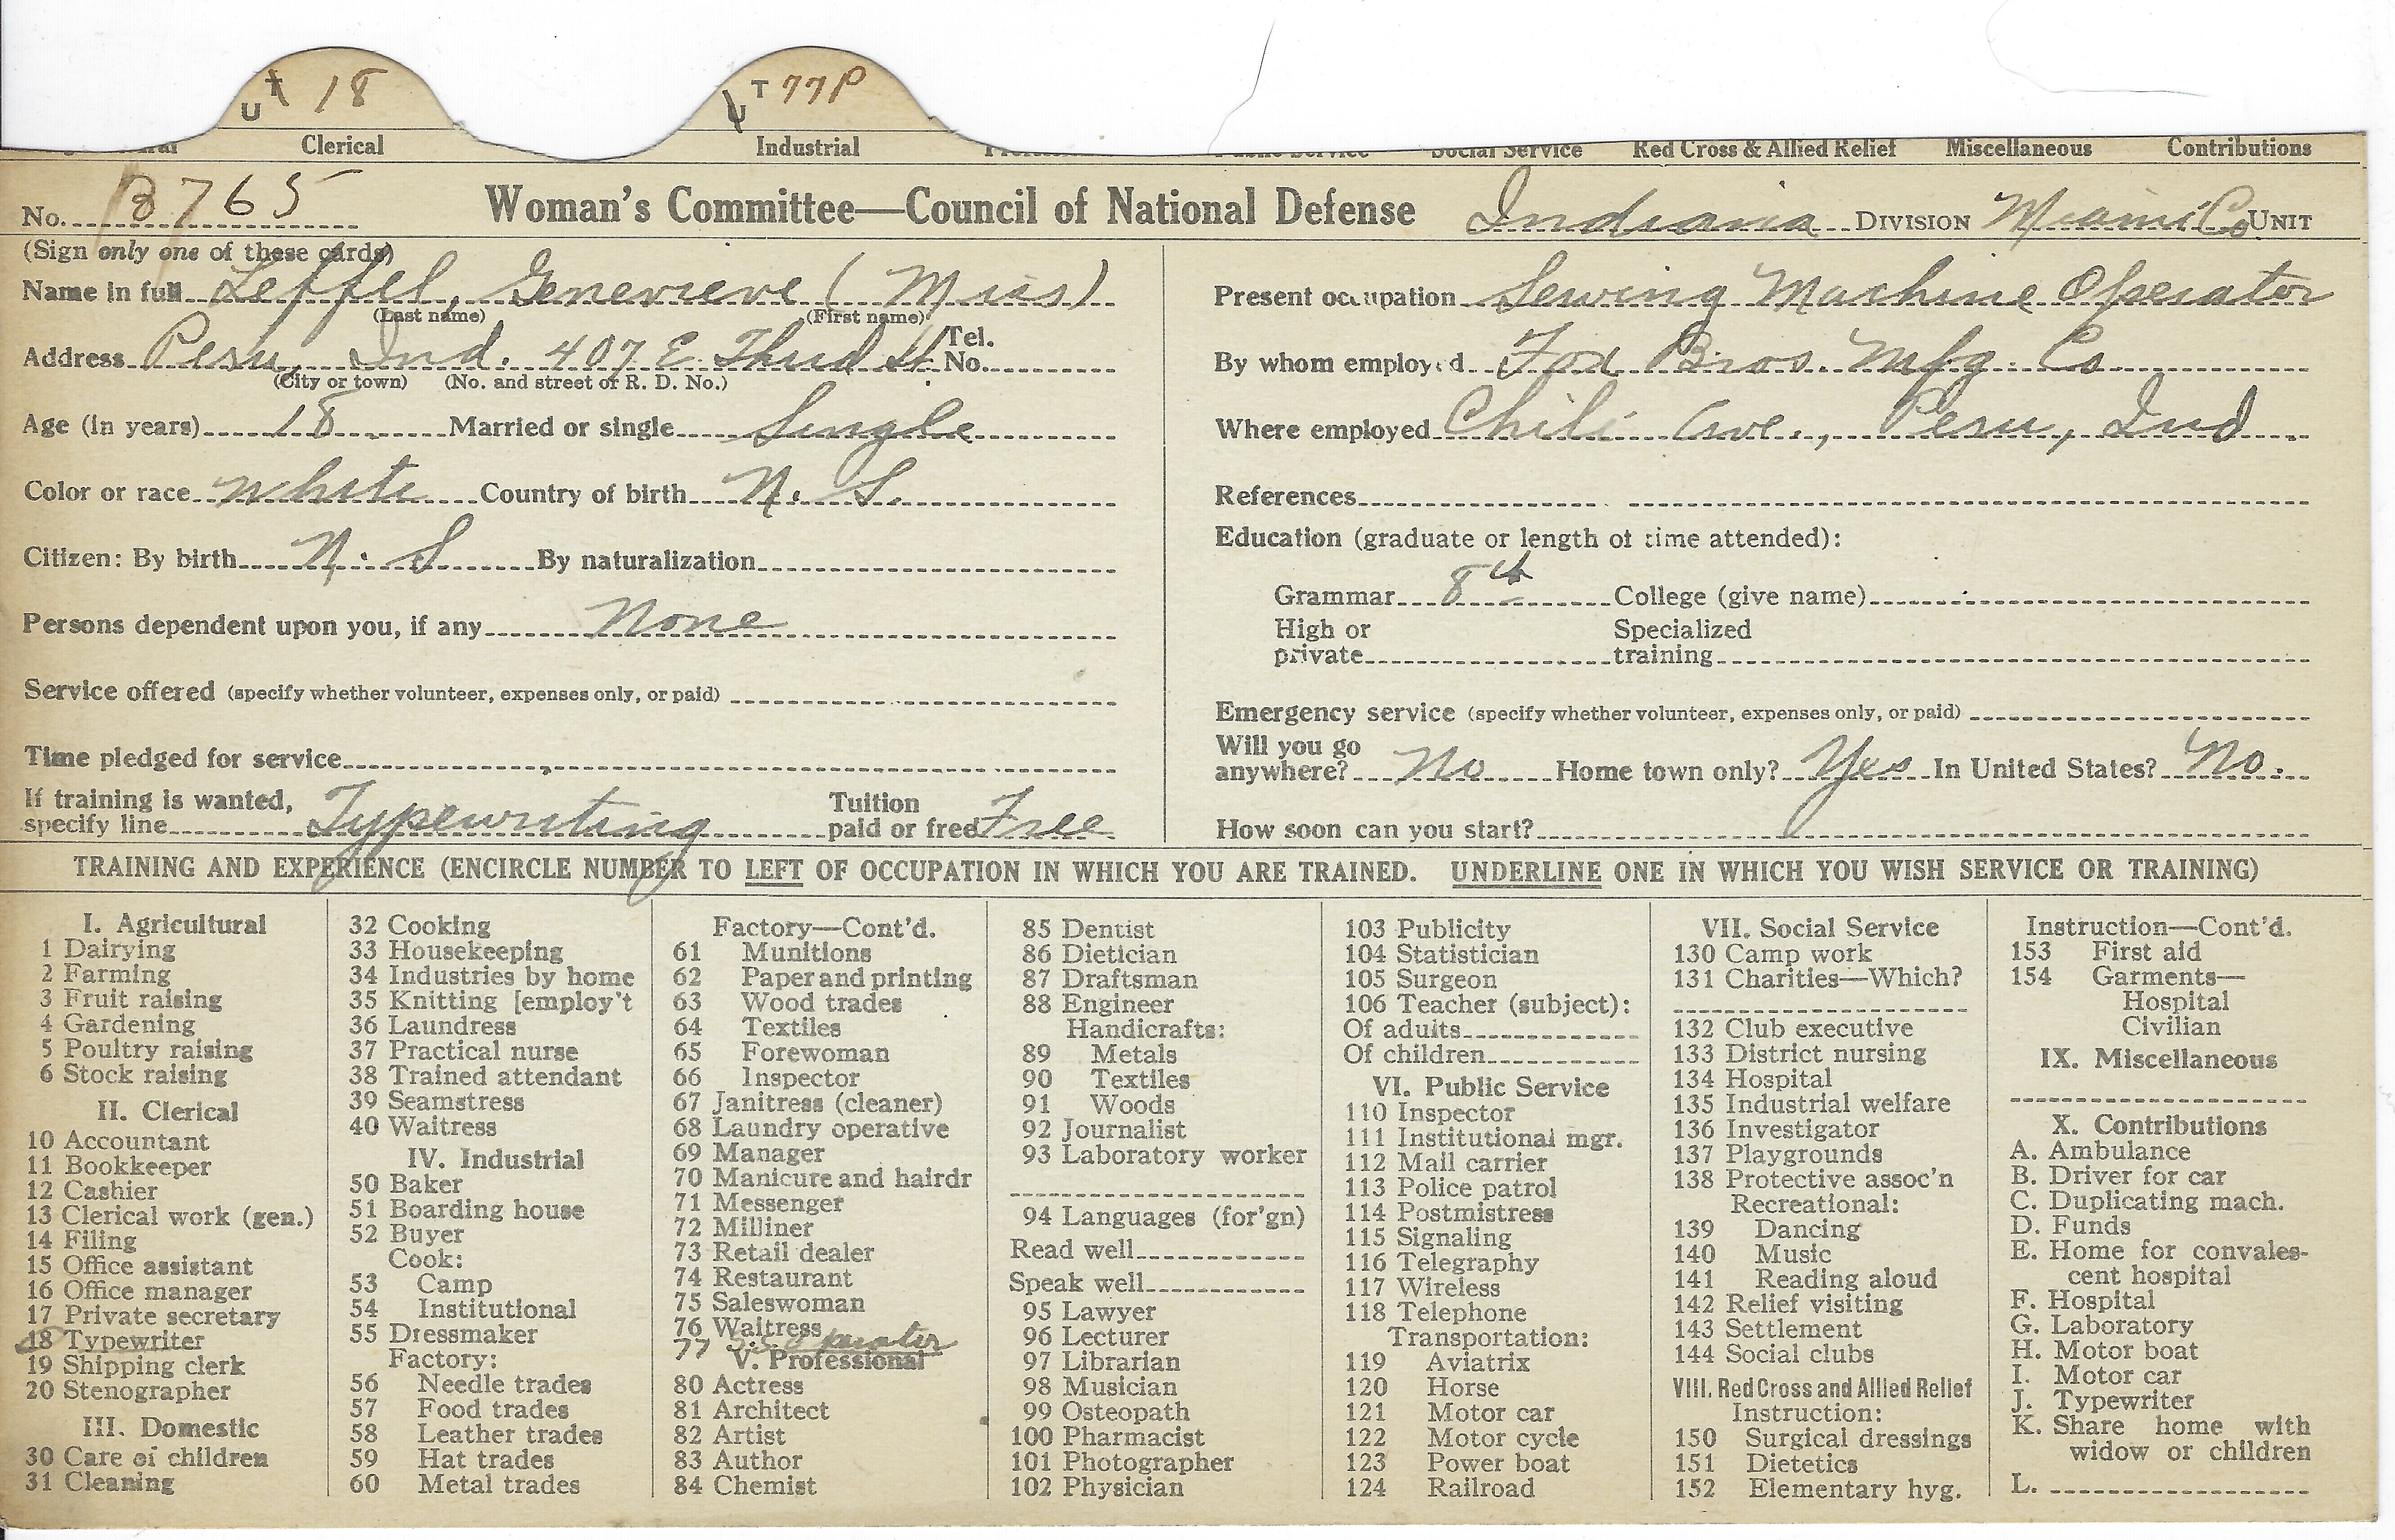 U T 18
U T 77P
Clerical Industrial Public Service Social Service Red Cross & Allied Relief Miscellaneous Contributions
No. B765 Woman's Committee—Council of National Defense Indiana DIVISION Miami Co. UNIT
(Sign only one of these cards)
Name in full Leffel, Genevieve (Miss)
(Last name) (First name)
Address Peru, Ind. 407 E. Third St. Tel. No.
(City or town) (No. and street or R. D. No.)
Age (in years) 18 Married or single Single
Color or race white Country of birth N. S.
Citizen: By birth N. S By naturalization
Persons dependent upon you, if any None
Service offered (specify whether volunteer, expenses only, or paid)
Time pledged for service
If training is wanted, specify line Typewriting Tuition paid or free Free
Present occupation Sewing Machine Operator
By whom employed Fox Bros. Mfg. Co
Where employed Chili Ave., Peru, Ind
References
Education (graduate or length of time attended):
Grammar 8th College (give name)
High or private Specialized training
Emergency service (specify whether volunteer, expenses only, or paid)
Will you go anywhere? No Home town only? Yes In United States? No.
How soon can you start?
TRAINING AND EXPERIENCE (ENCIRCLE NUMBER TO LEFT OF OCCUPATION IN WHICH YOU ARE TRAINED. UNDERLINE ONE IN WHICH YOU WISH SERVICE OR TRAINING)
I. Agricultural
1 Dairying
2 Farming
3 Fruit raising
4 Gardening
5 Poultry raising
6 Stock raising
II. Clerical
10 Accountant
11 Bookkeeper
12 Cashier
13 Clerical work (gen.)
14 Filing
15 Office assistant
16 Office manager
17 Private secretary
18 Typewriter
19 Shipping clerk
20 Stenographer
III. Domestic
30 Care of children
31 Cleaning
32 Cooking
33 Housekeeping
34 Industries by home
35 Knitting [employ't
36 Laundress
37 Practical nurse
38 Trained attendant
39 Seamstress
40 Waitress
IV. Industrial
50 Baker
51 Boarding house
52 Buyer
Cook:
53 Camp
54 Institutional
55 Dressmaker
Factory:
56 Needle trades
57 Food trades
58 Leather trades
59 Hat trades
60 Metal trades
Factory—Cont'd.
61 Munitions
62 Paper and printing
63 Wood trades
64 Textiles
65 Forewoman
66 Inspector
67 Janitress (cleaner)
68 Laundry operative
69 Manager
70 Manicure and hairdr
71 Messenger
72 Milliner
73 Retail dealer
74 Restaurant
75 Saleswoman
76 Waitress
77 Operator
V. Professional
80 Actress
81 Architect
82 Artist
83 Author
84 Chemist
85 Dentist
86 Dietician
87 Draftsman
88 Engineer
Handicrafts:
89 Metals
90 Textiles
91 Woods
92 Journalist
93 Laboratory worker
94 Languages (for'gn)
Read well
Speak well
95 Lawyer
96 Lecturer
97 Librarian
98 Musician
99 Osteopath
100 Pharmacist
101 Photographer
102 Physician
103 Publicity
104 Statistician
105 Surgeon
106 Teacher (subject):
Of adults
Of children
VI. Public Service
110 Inspector
111 Institutional mgr.
112 Mail carrier
113 Police patrol
114 Postmistress
115 Signaling
116 Telegraphy
117 Wireless
118 Telephone
Transportation:
119 Aviatrix
120 Horse
121 Motor car
122 Motor cycle
123 Power boat
124 Railroad
VII. Social Service
130 Camp work
131 Charities—Which?
132 Club executive
133 District nursing
134 Hospital
135 Industrial welfare
136 Investigator
137 Playgrounds
138 Protective assoc'n
Recreational:
139 Dancing
140 Music
141 Reading aloud
142 Relief visiting
143 Settlement
144 Social clubs
VIII. Red Cross and Allied Relief
Instruction:
150 Surgical dressings
151 Dietetics
152 Elementary hyg.
Instruction—Cont'd.
153 First aid
154 Garments—
Hospital
Civilian
IX. Miscellaneous
X. Contributions
A. Ambulance
B. Driver for car
C. Duplicating mach.
D. Funds
E. Home for convales-
cent hospital
F. Hospital
G. Laboratory
H. Motor boat
I. Motor car
J. Typewriter
K. Share home with
widow or children
L.